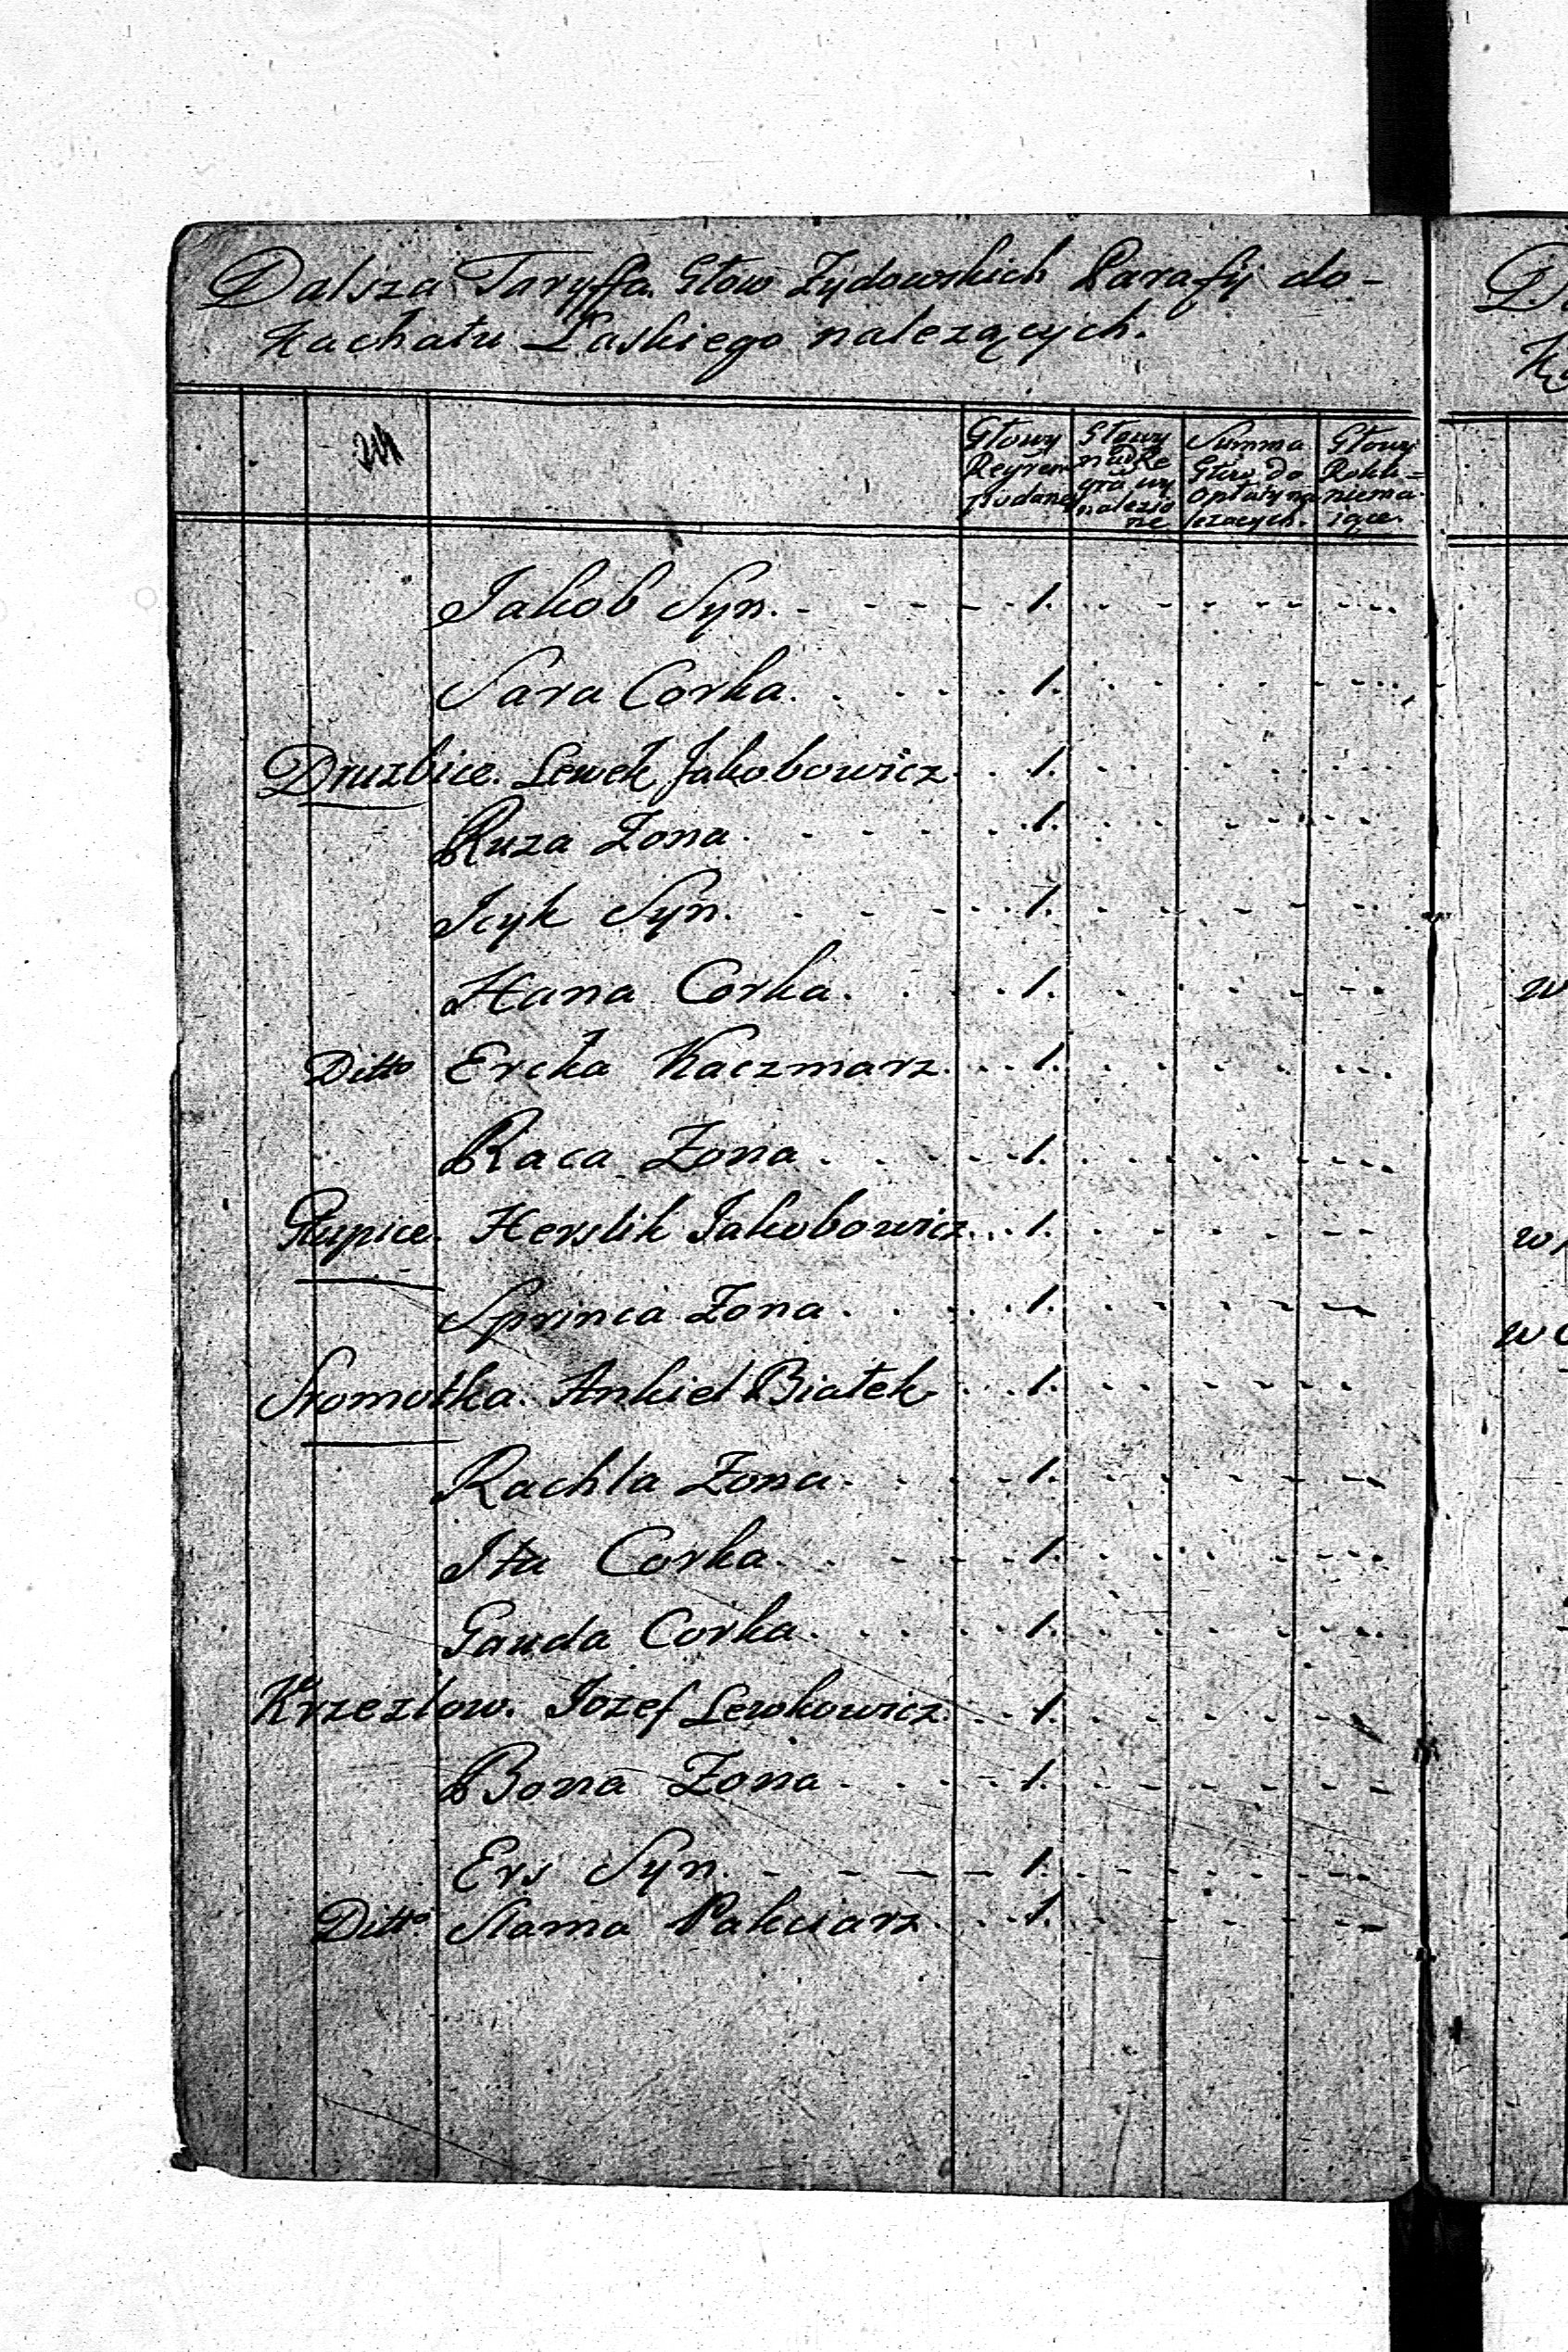 Dalsza Taryffa Głow Zydowskich Parafij do-
Kachału Łaskiego nalezących.
Głowy Głowy Summa Głowy
nadRe Głow do Roku=
podane gramy Opłaty na niema-
nalezio lezacych. iące.
ne
Jakob Syn. 1.
Sara Corka. 1.
Druzbice. Lewek Jakobowicz 1.
Ruza Zona. 1.
Icyk Syn. 1.
Hana Corka. 1.
Ditto Ercka Kaczmarz. 1.
Raca Zona. 1.
Głupice. Herslik Jakobowicz. 1.
Sprinca Zona. 1.
Sromotka. Ankiel Białek 1.
Rachla Zona. 1.
Ita Corka. 1.
Gauda Corka. 1.
Krzezlow. Jozef Lewkowicz. 1.
Bona Zona. 1.
Ers Syn. 1.
Ditto. Slama Pakciarz. 1.